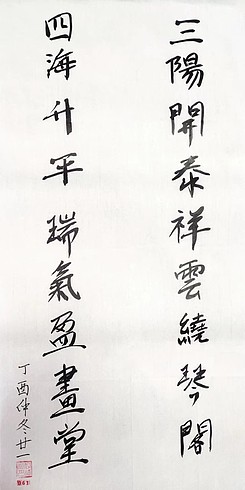 三陽開泰祥雲繞琴閣
四海升平瑞氣盈畫堂
丁酉仲冬廿一